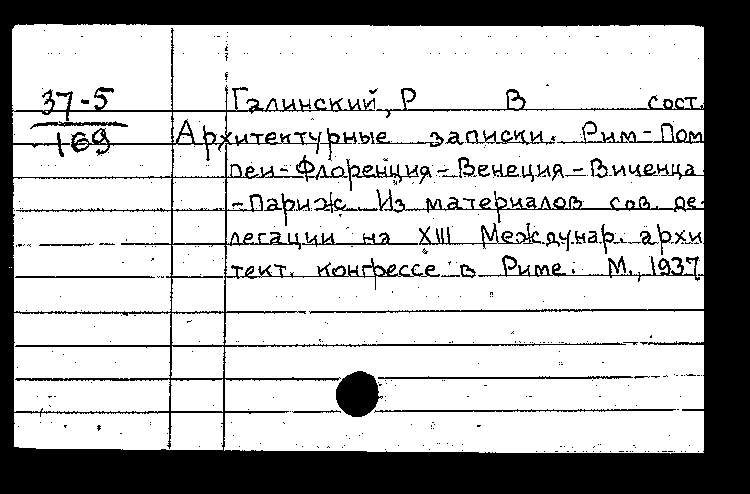 37-5
169
Галинский, Р В сост.
Архитектурные записки. Рим-Пом
пеи-Флоренция-Венеция-Виченца
-Париж. Из материалов сов. де-
легации на XIII Междунар. архи
тект. конгрессе в Риме. М., 1937